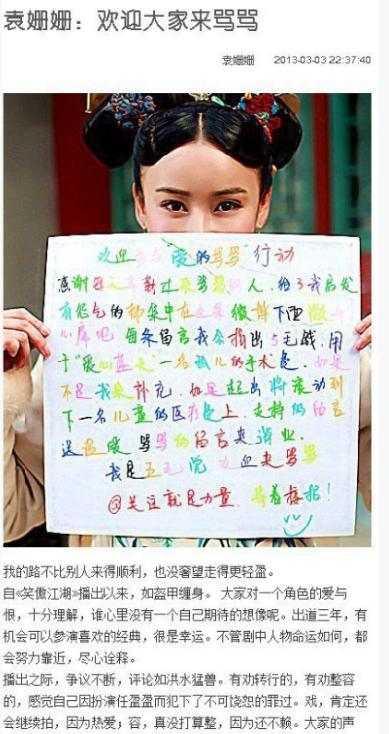 袁姗姗：欢迎大家来骂骂
袁姗姗 2013-03-03 22:37:40
欢迎参与"爱的骂骂"行动
感谢 来骂骂的人，给了我启发
有
吧 每条留言我会捐出5毛钱，用
于"爱心 "一名孤儿的手术
不足我来补充，如是超出将滚动到
下一名儿童的医疗 上，支持的留言
送 爱 骂骂的留言来
我是五毛党 欢迎来骂骂
@关注就是力量 等着接招！
我的路不比别人来得顺利，也没奢望走得更轻盈。
自《笑傲江湖》播出以来，如盔甲缠身。 大家对一个角色的爱与
恨，十分理解，谁心里没有一个自己期待的想像呢。出道三年，有
机会可以参演喜欢的经典，很是幸运。不管剧中人物命运如何，都
会努力靠近，尽心诠释。
播出之际，争议不断，评论如洪水猛兽。有劝转行的，有劝整容
的，感觉自己因扮演任盈盈而犯下了不可饶恕的罪过。戏，肯定还
会继续拍，因为热爱；容，真没打算整，因为还不赖。大家的声